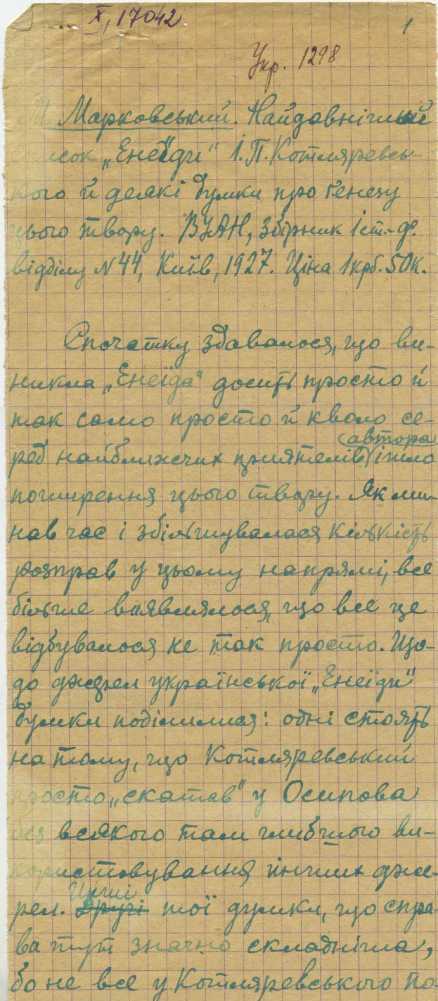 X, 17042
1
Укр. 1298
М. Марковський. Найдавніший
список „Енеїди" І. П. Котляревсь-
кого й деякі думки про генезу
цього твору. ВУАН, збірник Іст.-ф.
відділу N 44, Київ, 1927. Ціна 1 крб. 50 к.
Спочатку здавалося, що ви-
никла „Енеїда" досить просто й
так само просто й кволо се-
ред найближчих приятелів автора ішло
поширення цього твору. Як ми-
нав час і збільшувалася кількість
розправ у цьому напрямі, все
більше виявлялося, що все це
відбувалося не так просто. Що-
до джерел української „Енеїди"
думки поділилися: одні стоять
на тому, що Котляревський
просто „скатав" у Осипова
без всякого там глибшого ви-
користовування інших дже-
рел. Другі Инші тої думки, що спра-
ва тут значно складніша,
бо не все у Котляревського по-